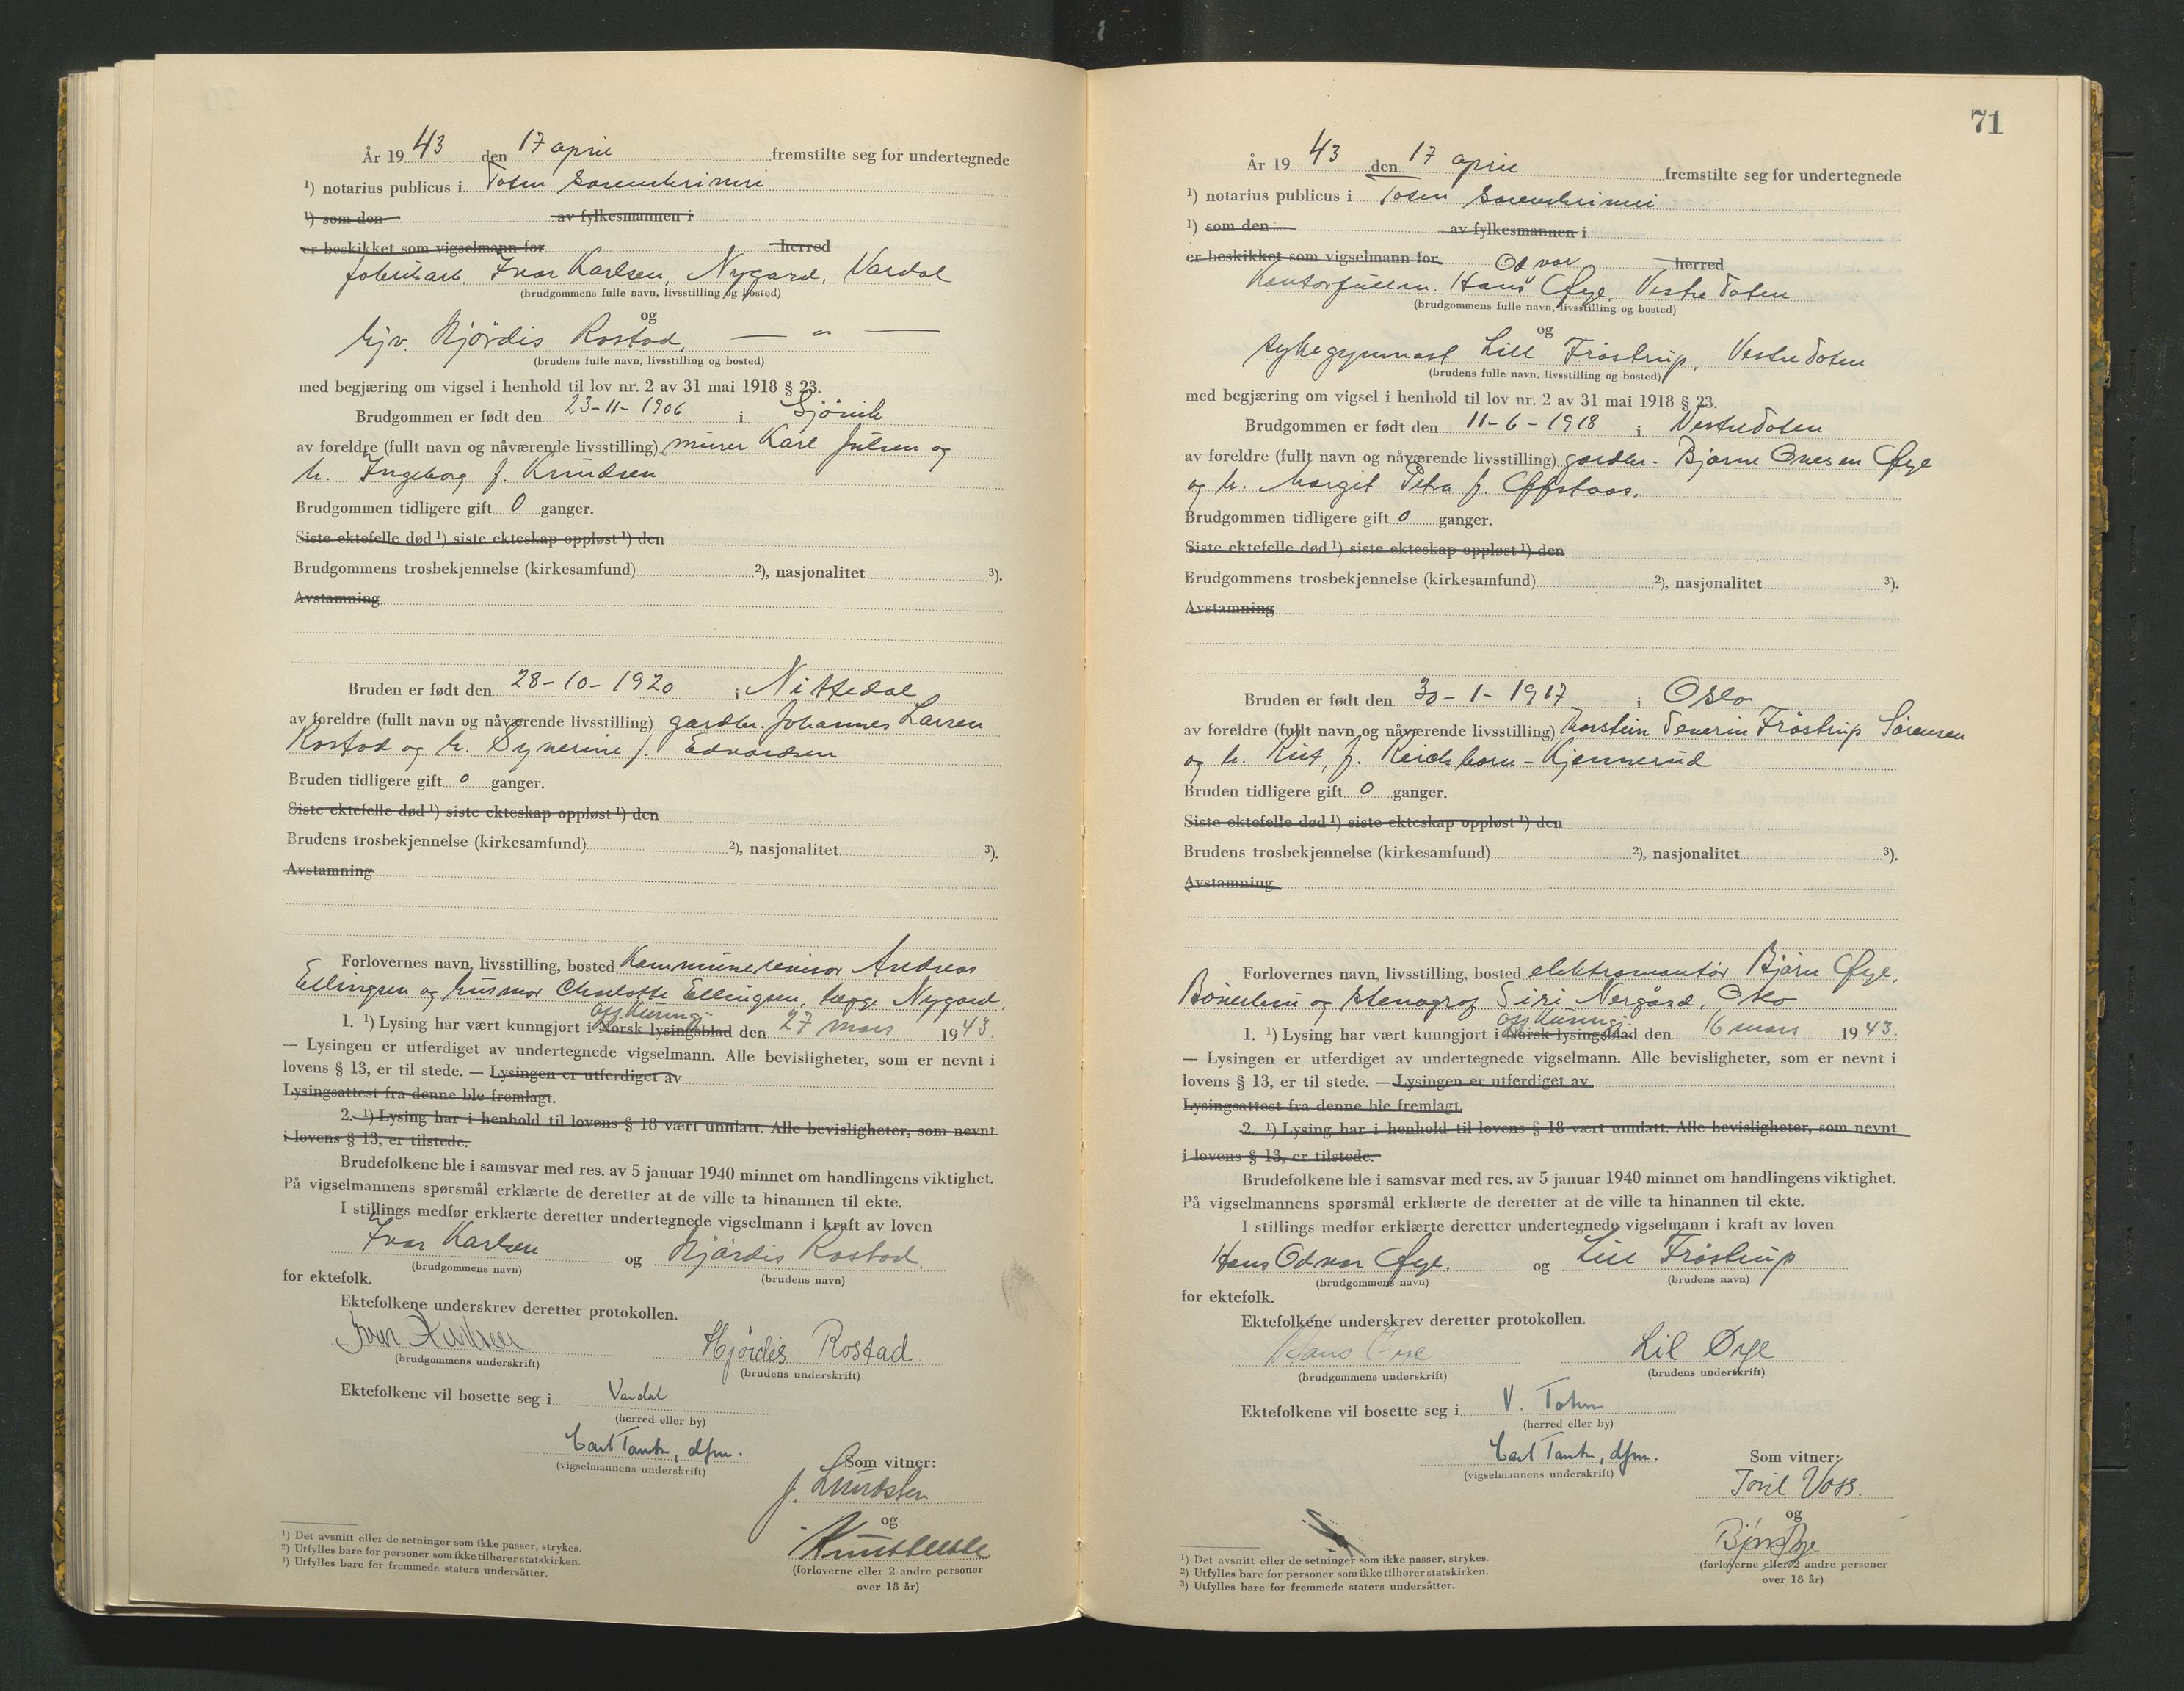 År 19 43 den 17 april fremstilte seg for undertegnede
¹) notarius publicus i Toten sorenskriveri
¹) som den av fylkesmannen i
er beskikket som vigselmann for herred
fabrikarb. Ivar Karlsen, Nygard, Vardal
(brudgommens fulle navn, livsstilling og bosted)
og
hjv. Hjördis Rostad, — " —
(brudens fulle navn, livsstilling og bosted)
med begjæring om vigsel i henhold til lov nr. 2 av 31 mai 1918 § 23.
Brudgommen er født den 23-11-1906 i Gjövik
av foreldre (fullt navn og nåværende livsstilling) murer Karl Julsen og
h. Ingeborg f. Knudsen
Brudgommen tidligere gift 0 ganger.
Siste ektefelle død ¹) siste ekteskap oppløst ¹) den
Brudgommens trosbekjennelse (kirkesamfund) ²), nasjonalitet ³).
Avstamning
Bruden er født den 28-10-1920 i Nittedal
av foreldre (fullt navn og nåværende livsstilling) gardbr. Johannes Larsen
Rostad og h. Synerine f. Edvardsen
Bruden tidligere gift 0 ganger.
Siste ektefelle død ¹) siste ekteskap oppløst ¹) den
Brudens trosbekjennelse (kirkesamfund) ²), nasjonalitet ³).
Avstamning
Forlovernes navn, livsstilling, bosted Kommunerevisor Andreas
Ellingsen og husmor Charlotte Ellingsen, begge Nygard.
off. kunngj.
1. ¹) Lysing har vært kunngjort i Norsk lysingsblad den 27 mars 19 43.
— Lysingen er utferdiget av undertegnede vigselmann. Alle bevisligheter, som er nevnt i
lovens § 13, er til stede. — Lysingen er utferdiget av
Lysingsattest fra denne ble fremlagt.
2. ¹) Lysing har i henhold til lovens § 18 vært unnlatt. Alle bevisligheter, som nevnt
i lovens § 13, er tilstede.
Brudefolkene ble i samsvar med res. av 5 januar 1940 minnet om handlingens viktighet.
På vigselmannens spørsmål erklærte de deretter at de ville ta hinannen til ekte.
I stillings medfør erklærte deretter undertegnede vigselmann i kraft av loven
Ivar Karlsen og Hjördis Rostad.
(brudgommens navn) (brudens navn)
for ektefolk.
Ektefolkene underskrev deretter protokollen.
Ivar Karlsen Hjördis Rostad.
(brudgommens underskrift) (brudens underskrift)
Ektefolkene vil bosette seg i Vardal
(herred eller by)
Carl Tank, dfm.
(vigselmannens underskrift)
Som vitner:
J. Lundsten
og
(forloverne eller 2 andre personer
over 18 år)
¹) Det avsnitt eller de setninger som ikke passer, strykes.
²) Utfylles bare for personer som ikke tilhører statskirken.
³) Utfylles bare for fremmede staters undersåtter.
71
År 19 43 den 17 april fremstilte seg for undertegnede
¹) notarius publicus i Toten sorenskriveri
¹) som den av fylkesmannen i
er beskikket som vigselmann for herred
Odvar
Kontorfullm. Hans Øye, Vestre Toten
(brudgommens fulle navn, livsstilling og bosted)
og
sykegymnast Lill Fröstrup, Vestre Toten
(brudens fulle navn, livsstilling og bosted)
med begjæring om vigsel i henhold til lov nr. 2 av 31 mai 1918 § 23.
Brudgommen er født den 11-6-1918 i Vestre Toten
av foreldre (fullt navn og nåværende livsstilling) gardbr. Bjarne Ovesen Øye
og h. Margit Petra f. Offstaas.
Brudgommen tidligere gift 0 ganger.
Siste ektefelle død ¹) siste ekteskap oppløst ¹) den
Brudgommens trosbekjennelse (kirkesamfund) ²), nasjonalitet ³).
Avstamning
Bruden er født den 30-1-1917 i Oslo
av foreldre (fullt navn og nåværende livsstilling) Thorstein Severin Fröstrup Sörensen
og h. Rut, f. Reichborn-Kjennerud
Bruden tidligere gift 0 ganger.
Siste ektefelle død ¹) siste ekteskap oppløst ¹) den
Brudens trosbekjennelse (kirkesamfund) ²), nasjonalitet ³).
Avstamning
Forlovernes navn, livsstilling, bosted elektromontör Björn Øye,
og stenograf Siri Nergård, Oslo
off. kunngj.
1. ¹) Lysing har vært kunngjort i Norsk lysingsblad den 16 mars 19 43.
— Lysingen er utferdiget av undertegnede vigselmann. Alle bevisligheter, som er nevnt i
lovens § 13, er til stede. — Lysingen er utferdiget av
Lysingsattest fra denne ble fremlagt.
2. ¹) Lysing har i henhold til lovens § 18 vært unnlatt. Alle bevisligheter, som nevnt
i lovens § 13, er tilstede.
Brudefolkene ble i samsvar med res. av 5 januar 1940 minnet om handlingens viktighet.
På vigselmannens spørsmål erklærte de deretter at de ville ta hinannen til ekte.
I stillings medfør erklærte deretter undertegnede vigselmann i kraft av loven
Hans Odvar Øye. og Lill Fröstrup
(brudgommens navn) (brudens navn)
for ektefolk.
Ektefolkene underskrev deretter protokollen.
Hans Øye Lil Øye
(brudgommens underskrift) (brudens underskrift)
Ektefolkene vil bosette seg i V. Toten
(herred eller by)
Carl Tank, dfm.
(vigselmannens underskrift)
Som vitner:
Toril Voss.
og
Bjørn Øye
(forloverne eller 2 andre personer
over 18 år)
¹) Det avsnitt eller de setninger som ikke passer, strykes.
²) Utfylles bare for personer som ikke tilhører statskirken.
³) Utfylles bare for fremmede staters undersåtter.